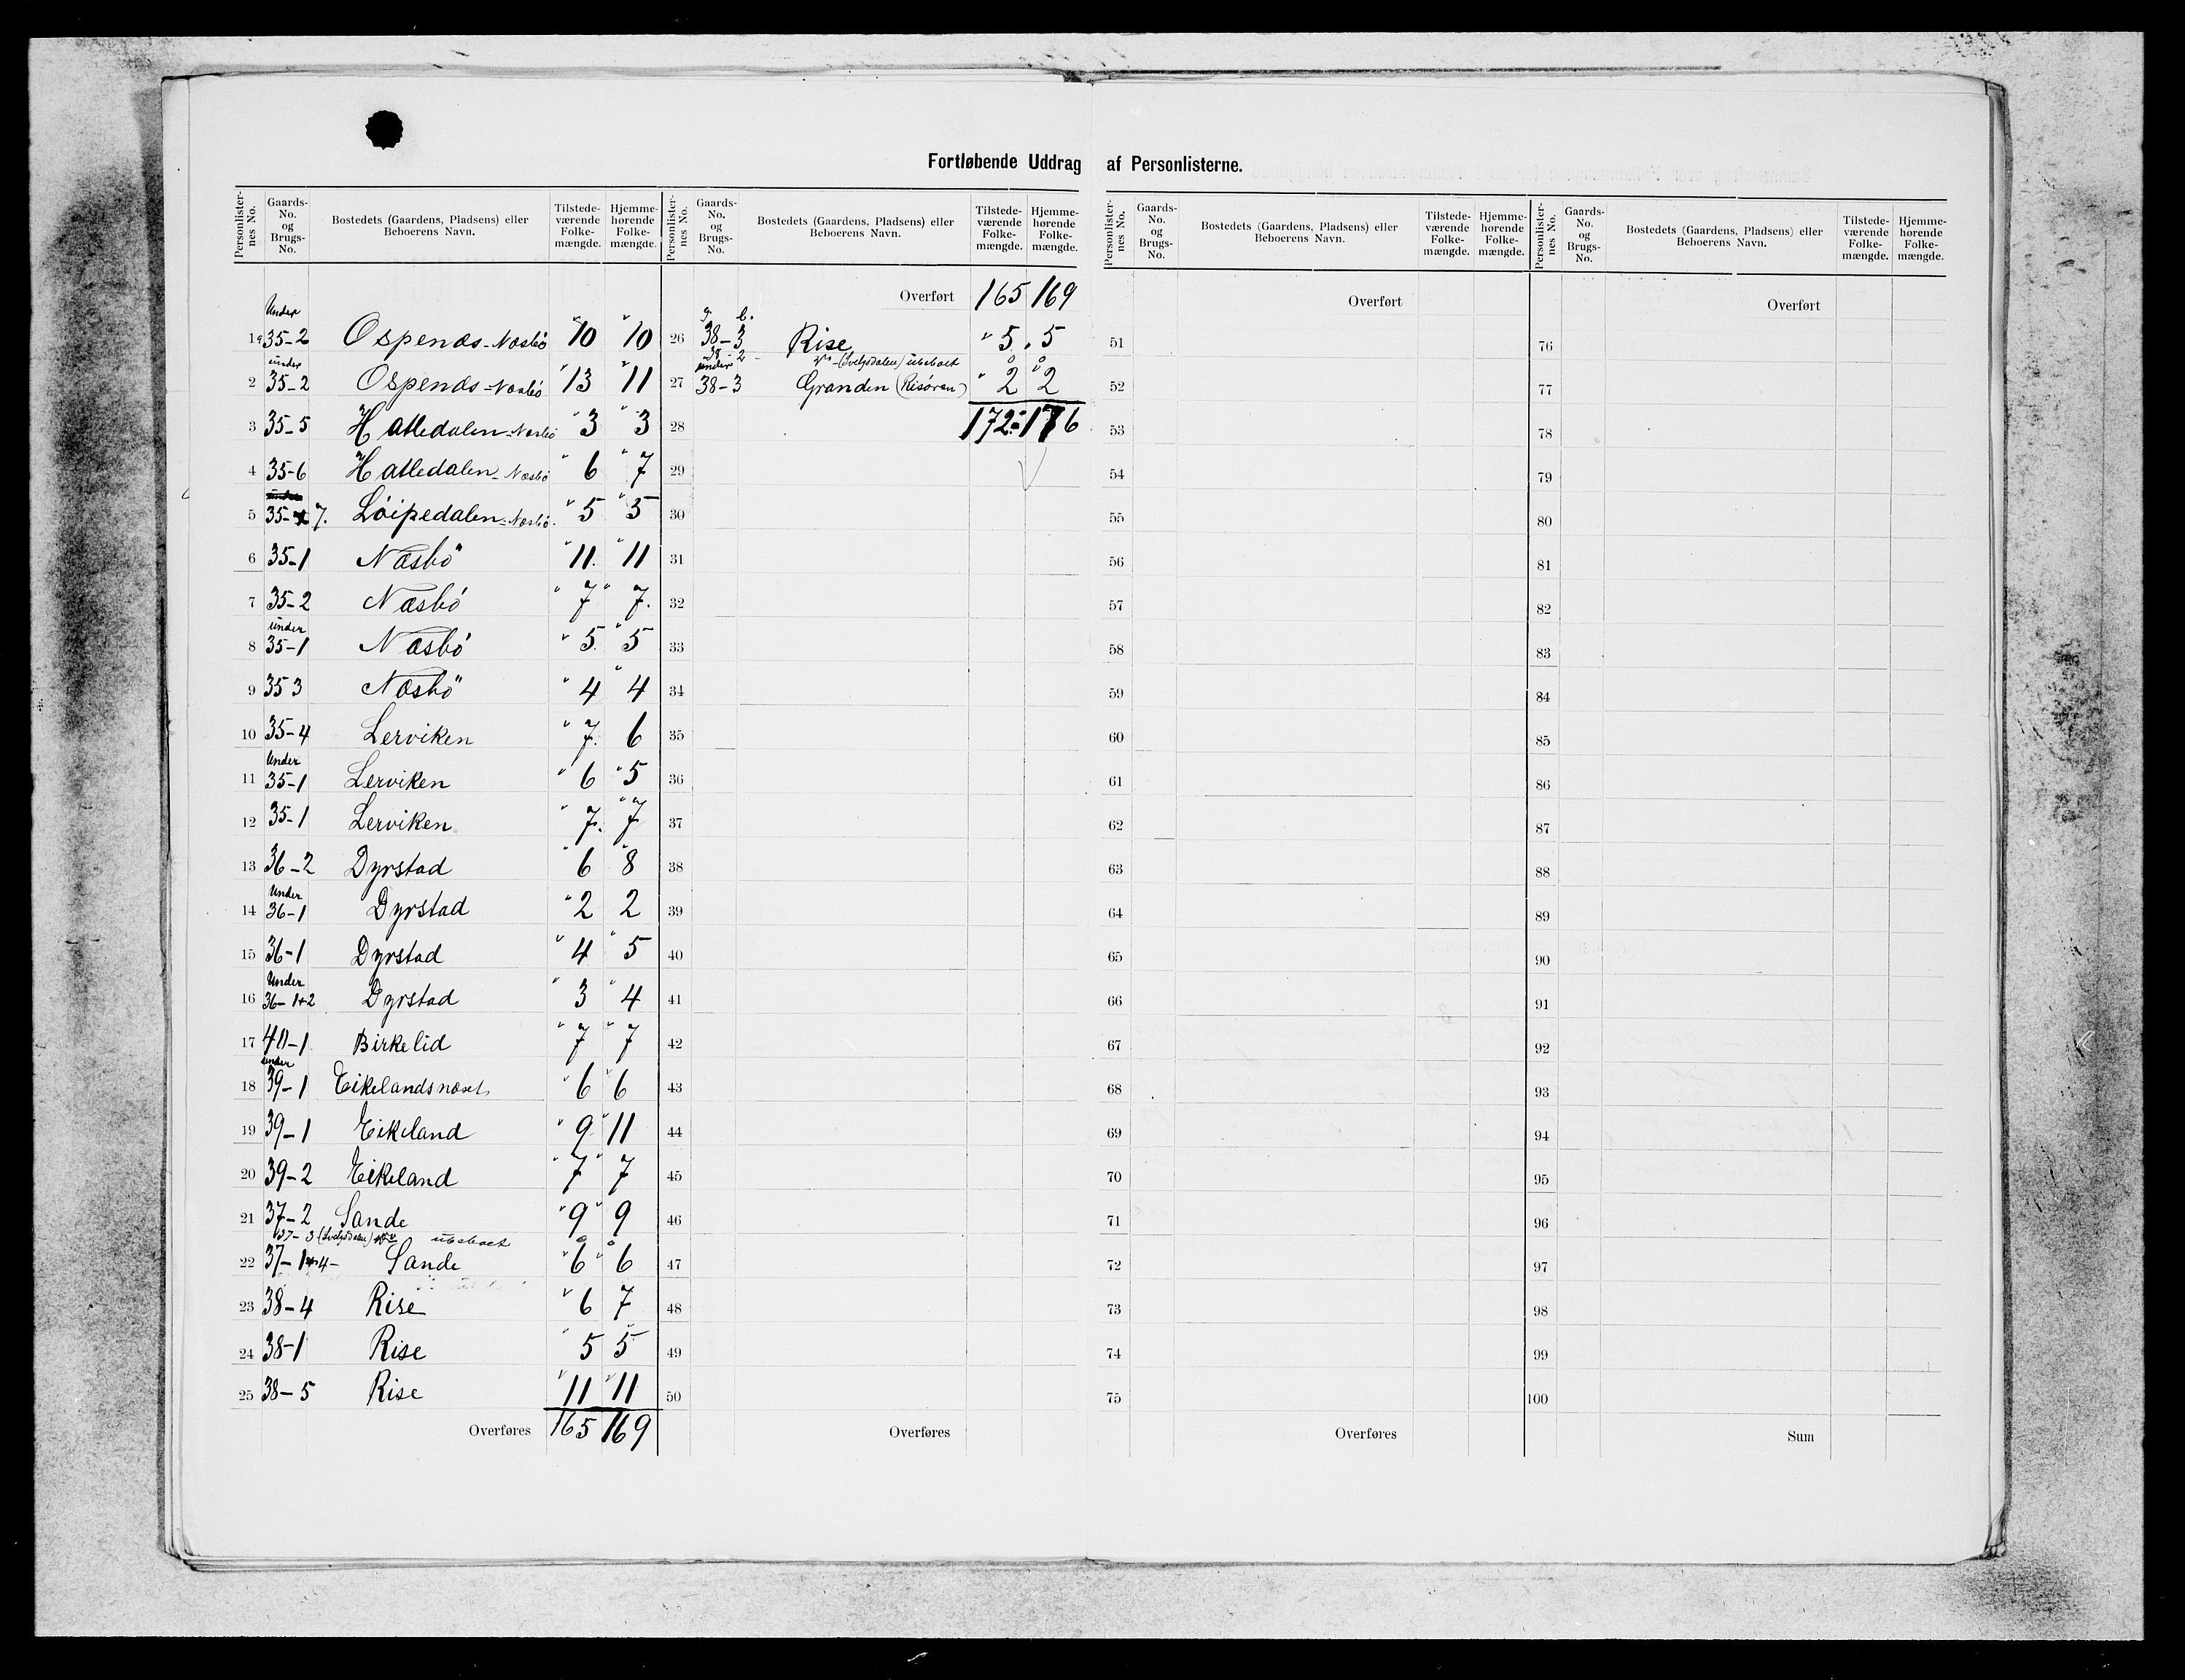 Fortløbende Uddrag af Personlisterne.
Personlister-nes No. | Gaards-No. og Brugs-No. | Bostedets (Gaardens, Pladsens) eller Beboerens Navn. | Tilstede-værende Folke-mængde. | Hjemme-hørende Folke-mængde.
Under
1 35-2 Ospenæs-Næsbø 10 10
under
2 35-2 Ospenæs-Næsbø 13 11
3 35-5 Hatledalen-Næsbø 3 3
4 35-6 Hatledalen-Næsbø 6 7
5 35-7. Løipedalen-Næsbø. 5 5
6 35-1 Næsbø 11. 11
7 35-2 Næsbø 7 7.
under
8 35-1 Næsbø 5. 5
9 35 3 Næsbø 4 4
10 35-4 Lerviken 7. 6
Under
11 35-1 Lerviken 6 5
12 35-1 Lerviken 7. 7
13 36-2 Dyrstad 6 8
Under
14 36-1 Dyrstad 2 2
15 36-1 Dyrstad 4 5
Under
16 36-1+2 Dyrstad 3 4
17 40-1 Birkelid 7 7
under
18 39-1 Eikelandsnæset 6 6
19 39-1 Eikeland 9 11
20 39-2 Eikeland 7 7
21 37-2 Sande 9 9
37-3 ubeboet 0 0
22 37-1 4- Sande 6 6
23 38-4 Rise 6 7
24 38-1 Rise 5 5
25 38-5 Rise 11 11
Overføres 165 169
Personlister-nes No. | Gaards-No. og Brugs-No. | Bostedets (Gaardens, Pladsens) eller Beboerens Navn. | Tilstede-værende Folke-mængde. | Hjemme-hørende Folke-mængde.
Overført 165 169
g. b.
26 38-3 Rise 5. 5
38-2- ubeboet 0 0
under
27 38-3 Granden (Risøren) 2 2
28 172 176
29
30
31
32
33
34
35
36
37
38
39
40
41
42
43
44
45
46
47
48
49
50
Overføres
Personlister-nes No. | Gaards-No. og Brugs-No. | Bostedets (Gaardens, Pladsens) eller Beboerens Navn. | Tilstede-værende Folke-mængde. | Hjemme-hørende Folke-mængde.
Overført
51
52
53
54
55
56
57
58
59
60
61
62
63
64
65
66
67
68
69
70
71
72
73
74
75
Overføres
Personlister-nes No. | Gaards-No. og Brugs-No. | Bostedets (Gaardens, Pladsens) eller Beboerens Navn. | Tilstede-værende Folke-mængde. | Hjemme-hørende Folke-mængde.
Overført
76
77
78
79
80
81
82
83
84
85
86
87
88
89
90
91
92
93
94
95
96
97
98
99
100
Sum